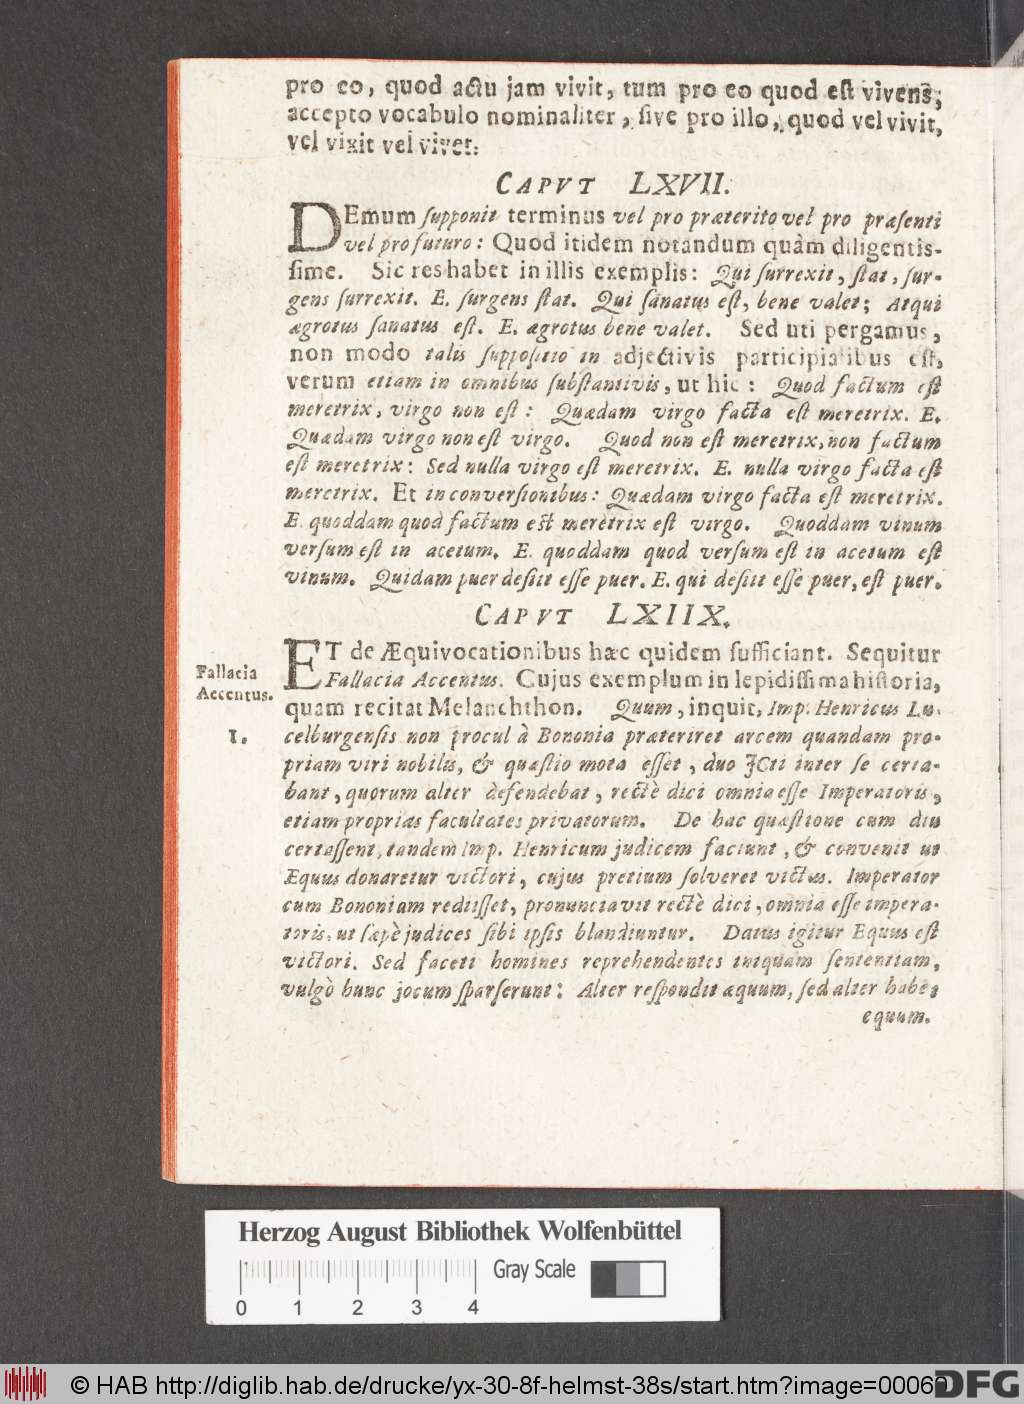 pro eo, quod actu jam vivit, tum pro eo quod est vivens;
accepto vocabulo nominaliter, sive pro illo, quod vel vivit,
vel vixit vel vivet.
CAPVT LXVII.
DEmum supponit terminus vel pro præterito vel pro præsenti
vel pro futuro: Quod itidem notandum quàm diligentis-
sime. Sic res habet in illis exemplis: Qui surrexit, stat, sur-
gens surrexit. E. surgens stat. Qui sanatus est, bene valet; Atqui
ægrotus sanatus est. E. ægrotus bene valet. Sed uti pergamus,
non modo talis suppositio in adjectivis participialibus est,
verum etiam in omnibus substantivis, ut hic: Quod factum est
meretrix, virgo non est: Quædam virgo facta est meretrix. E.
Quædam virgo non est virgo. Quod non est meretrix, non factum
est meretrix: Sed nulla virgo est meretrix. E. nulla virgo facta est
meretrix. Et in conversionibus: Quædam virgo facta est meretrix.
E. quoddam quod factum est meretrix est virgo. Quoddam vinum
versum est in acetum. E. quoddam quod versum est in acetum est
vinum. Quidam puer desiit esse puer. E. qui desiit esse puer, est puer.
CAPVT LXIIX.
ET de Æquivocationibus hæc quidem sufficiant. Sequitur
Fallacia
Accentus.
Fallacia Accentus. Cujus exemplum in lepidissima historia,
quam recitat Melanchthon. Quum, inquit, Imp. Henricus Lu-
I.
celburgensis non procul à Bononia præteriret arcem quandam pro-
priam viri nobilis, & quæstio mota esset, duo JCti inter se certa-
bant, quorum alter defendebat, rectè dici omnia esse Imperatoris,
etiam proprias facultates privatorum. De hac quæstione cum diu
certassent, tandem Imp. Henricum judicem faciunt, & convenit ut
Æquus donaretur victori, cujus pretium solveret victus. Imperator
cum Bononiam rediisset, pronunciavit rectè dici, omnia esse impera-
toris, ut sæpè judices sibi ipsis blandiuntur. Datus igitur Equus est
victori. Sed faceti homines reprehendentes iniquam sententiam,
vulgò hunc jocum sparserunt: Alter respondit æquum, sed alter habet
equum.
Herzog August Bibliothek Wolfenbüttel
Gray Scale
0 1 2 3 4
© HAB http://diglib.hab.de/drucke/yx-30-8f-helmst-38s/start.htm?image=00060
DFG